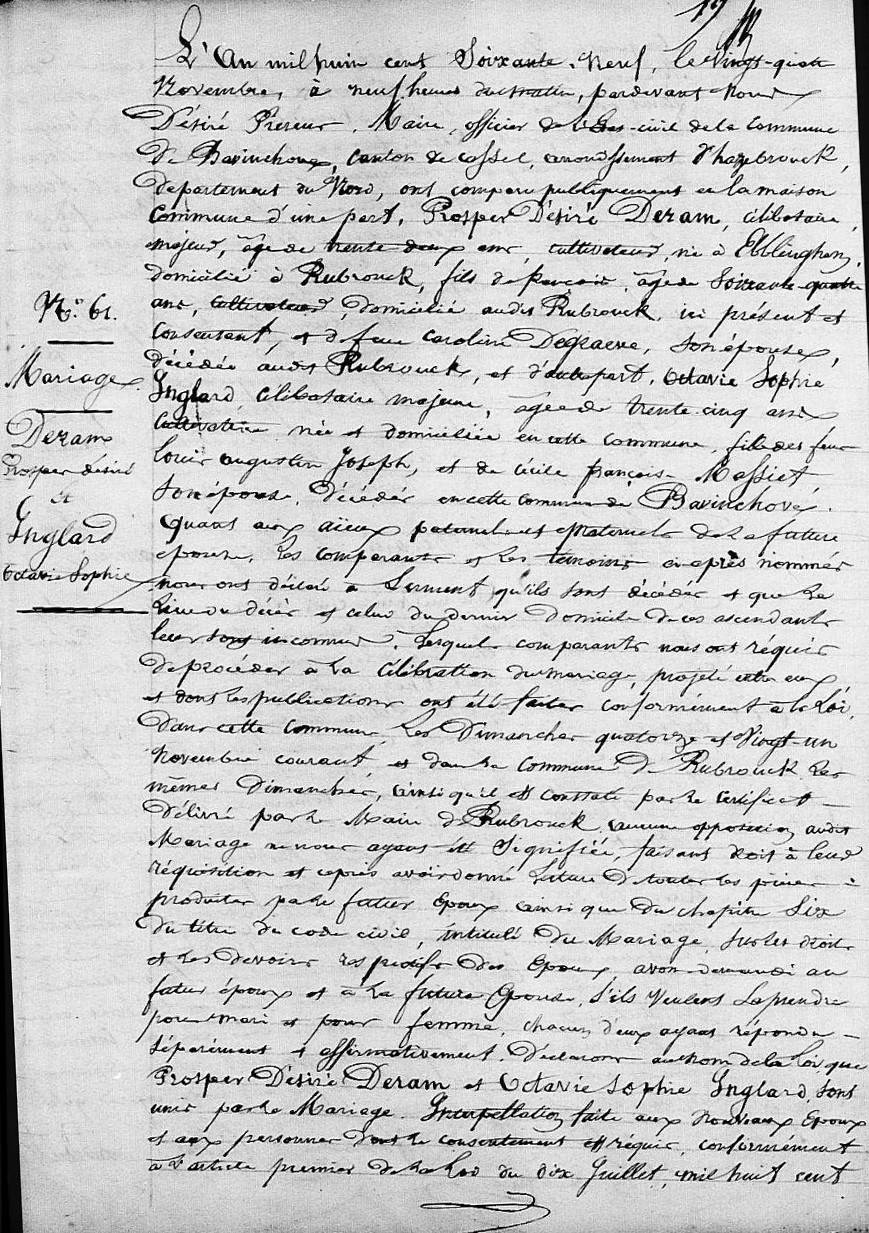 19
L'An mil huit cent Soixante-Neuf, le vingt-quatre
Novembre, à neuf heures du matin, pardevant Nous
Désiré Preseur, Maire, officier de l'état-civil de la Commune
de Bavinchove, canton de Cassel, arrondissement d'hazebrouck,
département du Nord, ont comparu publiquement en la maison
Commune d'une part, Prosper Désiré Deram, célibataire
majeur, âgé de trente deux ans, cultivateur, né à Ebblinghem,
domicilié à Rubrouck, fils de françois, âgé de Soixante-quatre
ans, cultivateur, domicilié audit Rubrouck, ici présent et
Consentant, et de feue Caroline Degraeve, son épouse,
décédée audit Rubrouck, et d'autre part, Octavie Sophie
Inglard célibataire majeure, âgée de trente-cinq ans
cultivatrice née et domiciliée en cette commune, fille des feus
Louis augustin Joseph, et de Cécile françoise Massiet
son épouse, décédés en cette commune de Bavinchove.
Quant aux aïeux paternels et Maternels de la future
épouse, les comparants et les témoins ci-après nommés
nous ont déclaré à Serment qu'ils sont décédés et que le
lieu du décès et celui du dernier domicile de ces ascendants
leur sont inconnus. Lesquels comparants nous ont réquis
de procéder à la Célébration du mariage, projeté entre eux
et dont les publications ont été faites conformément à la Loi,
dans cette commune, les Dimanches quatorze et Vingt-un
Novembre courant, et dans la commune de Rubrouck les
mêmes Dimanches, ainsi qu'il est constaté par le certificat
délivré par le Maire de Rubrouck, aucune opposition audit
Mariage ne nous ayant été Signifiée, faisant droit à leur
réquisition et après avoir donné lecture de toutes les pièces
produites par le futur Epoux ainsi que du chapitre Six
du titre du code civil, intitulé du Mariage, sur les droits
et les devoirs respectifs des Epoux, avons demandé au
futur époux et à la future Epouse, s'ils veulent se prendre
pour mari et pour femme, chacun d'eux ayant répondu
séparément et affirmativement. Déclarons au nom de la Loi que
Prosper Désiré Deram et Octavie Sophie Inglard, sont
unis par le Mariage. Interpellation faite aux nouveaux Epoux
et aux personnes dont le consentement est réquis, conformément
à l'article premier de la Loi du dix Juillet, mil huit cent
N.° 61.
Mariage
Deram
Prosper désiré
et
Inglard
Octavie Sophie